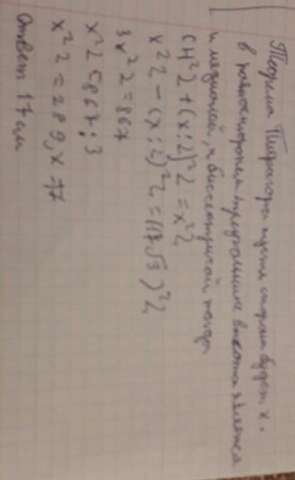 Теорема Пифагора пусть сторона будет x.
в равностороннем треугольнике высота является
и медианой, и биссектрисой тогда
CH^2 2+(x:2)^2 2=x^2 2
x^2 2-(x:2)^2 2=(17√3)^2 2
3x^2 2=867
x^2 2=867:3
x^2 2=289, x=17
Ответ 17 см